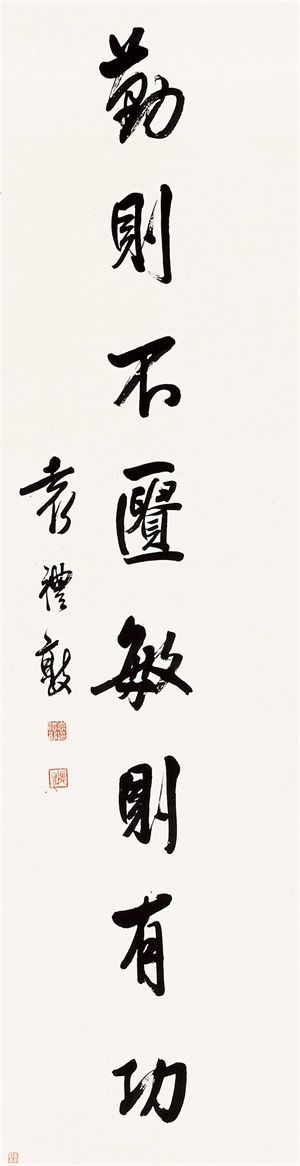 勤則不匱敏則有功
袁禮敦